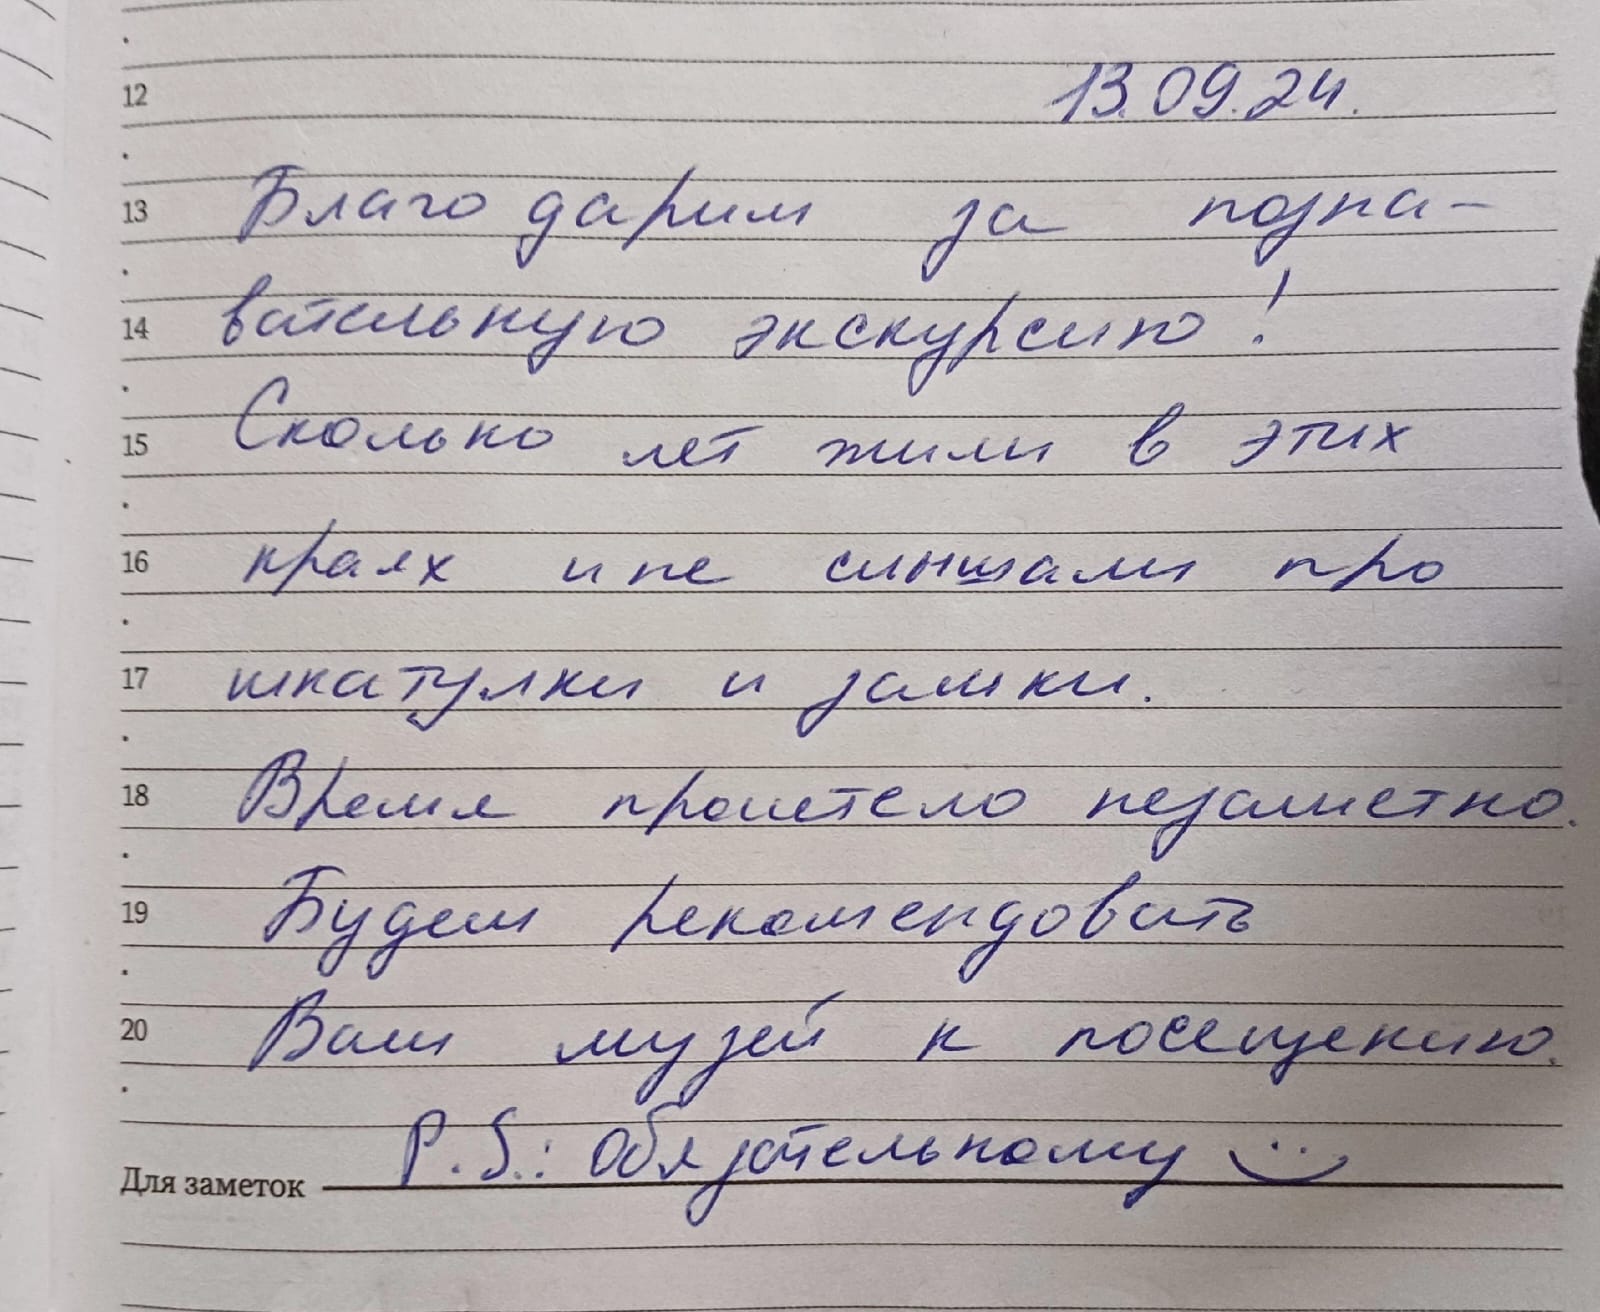 12
13.09.24.
13 Благодарим за позна-
14 вательную экскурсию!
15 Сколько лет жили в этих
16 краях и не слышали про
17 шкатулки и замки.
18 Время пролетело незаметно.
19 Будем рекомендовать
20 Ваш музей к посещению.
P.S.: Обязательному
Для заметок